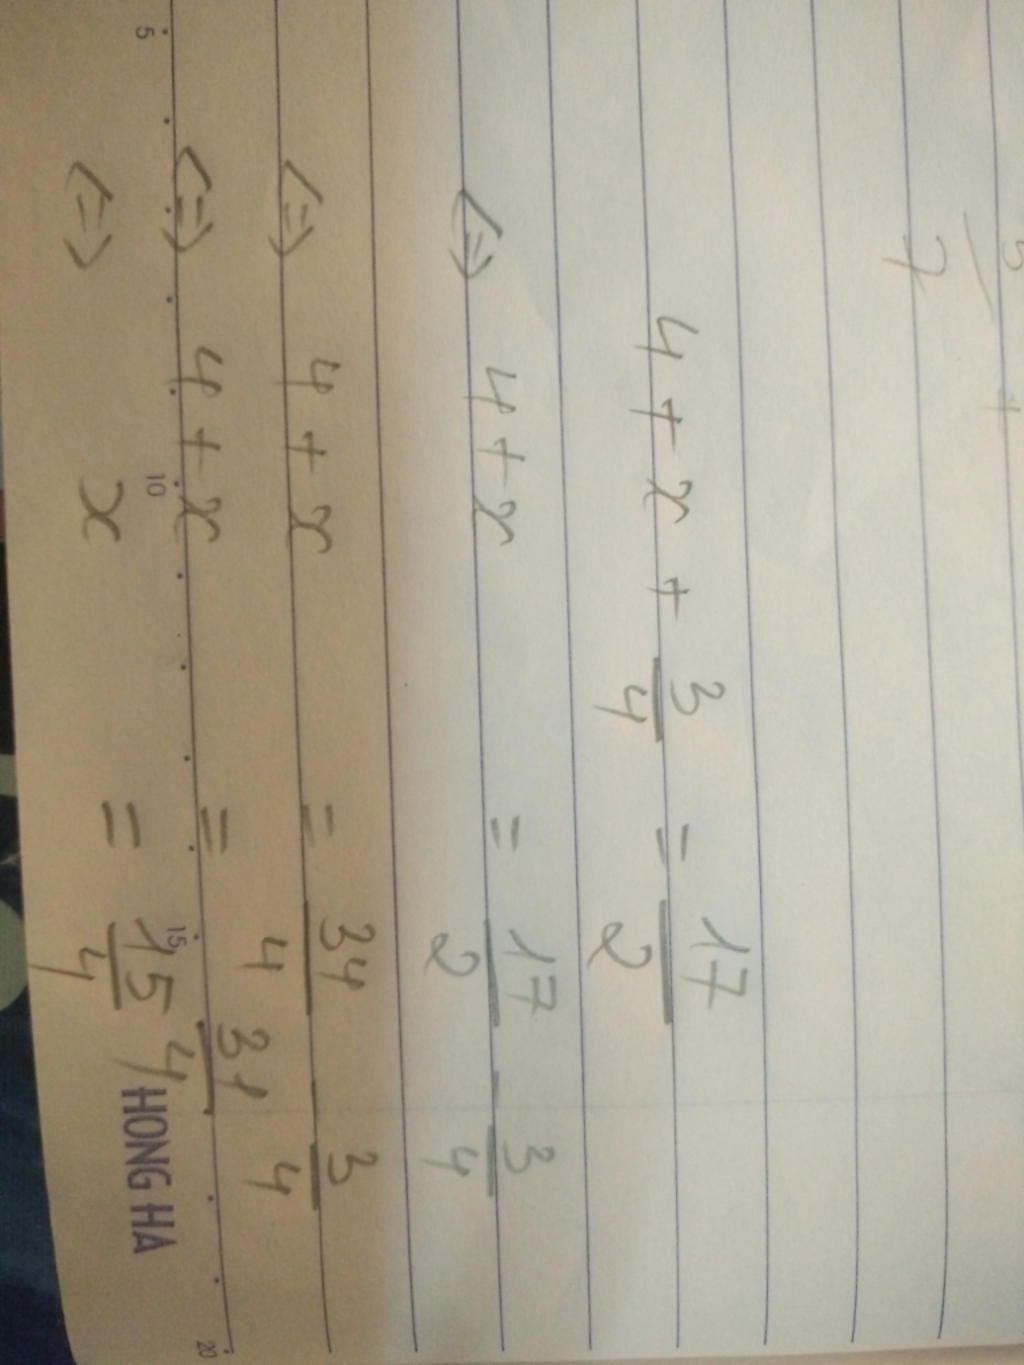 5
7
4 + x + 3/4 = 17/2
<=> 4 + x = 17/2 - 3/4
<=> 4 + x = 34/4 - 3/4
<=> 4 + x = 31/4
<=> x = 15/4
5 10 15 20
HONG HA